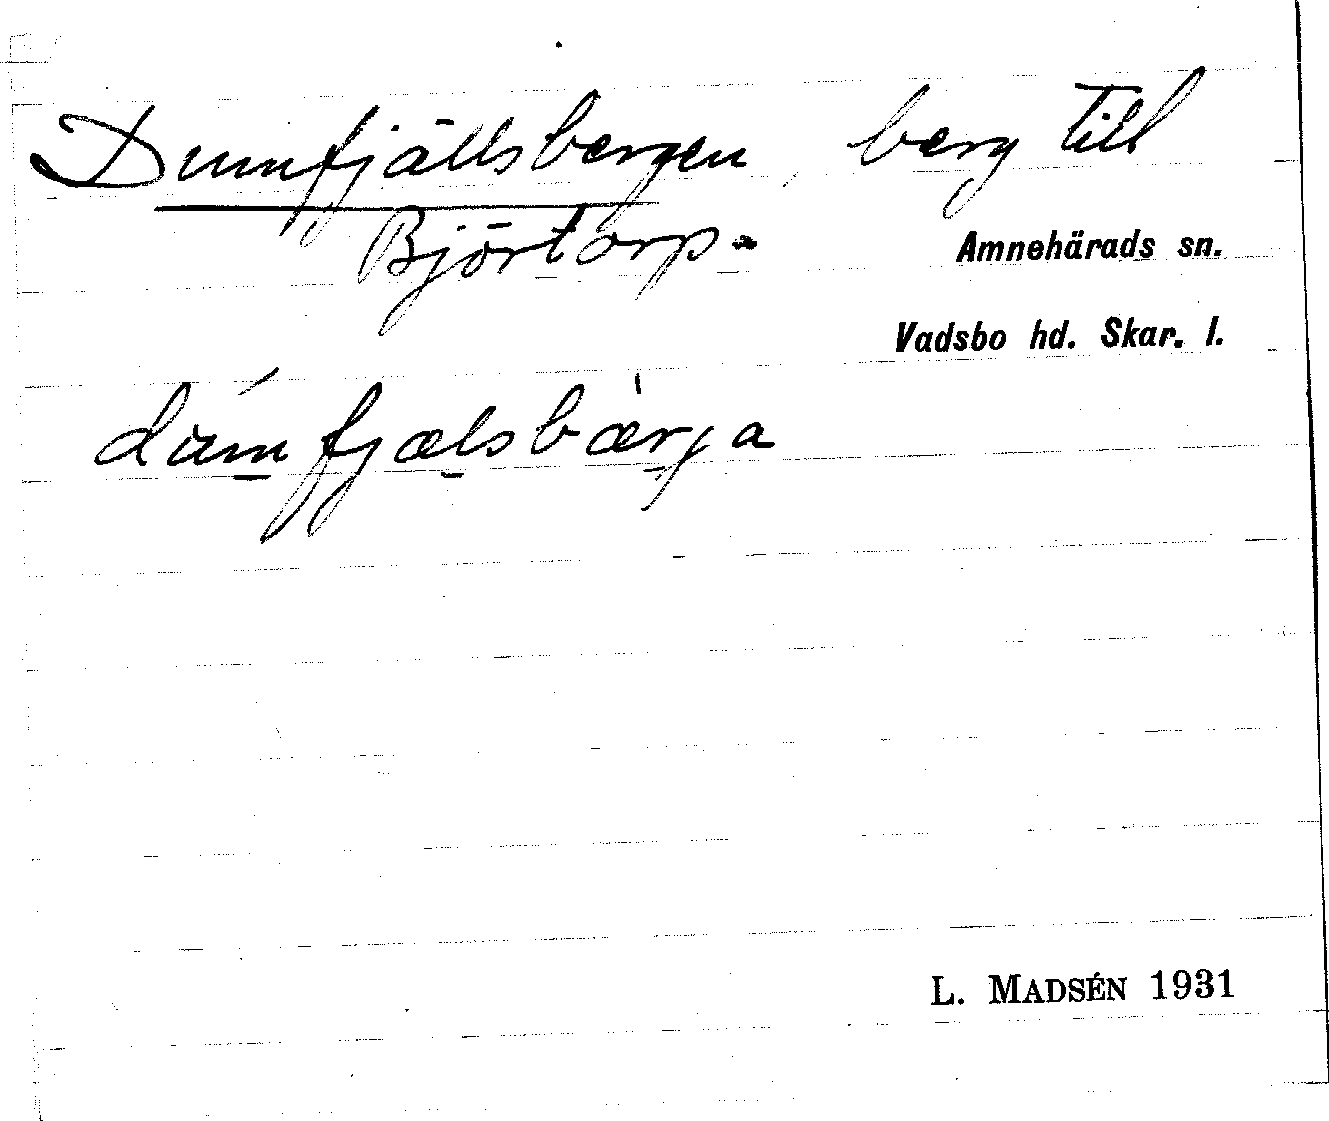 Dumfjällsbergen, berg till
Björtorp.
Amnehärads sn.
Vadsbo hd. Skar. l.
L. MADSÉN 1931